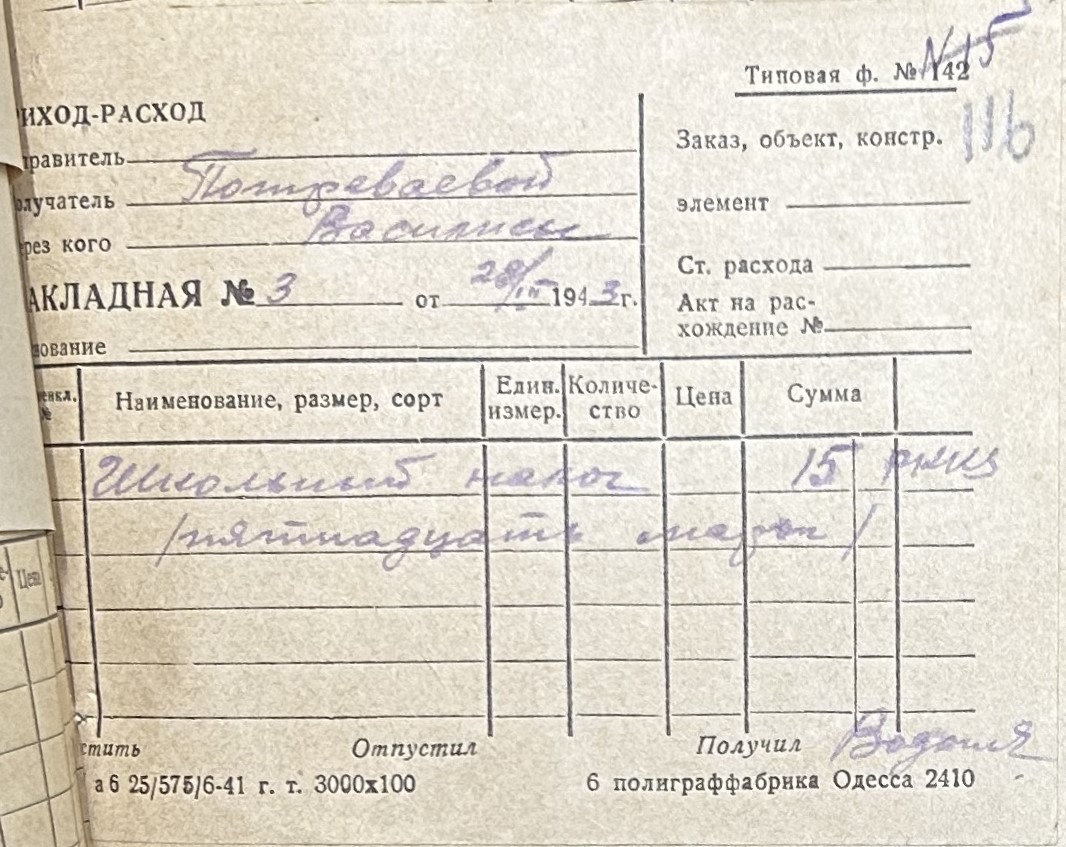 N 15
Типовая ф. № 142
116
ИХОД-РАСХОД
равитель
олучатель Потреваевой
Василисы
рез кого
АКЛАДНАЯ № 3 от 28/III 1943 г.
ование
Заказ, объект, констр.
элемент
Ст. расхода
Акт на рас-
хождение №
енкл. №
Наименование, размер, сорт
Един. измер.
Количе- ство
Цена
Сумма
Школьный налог 15
/пятнадцать марок/
стить Отпустил Получил
а6 25/575/6-41 г. т. 3000х100 6 полиграффабрика Одесса 2410
Цена